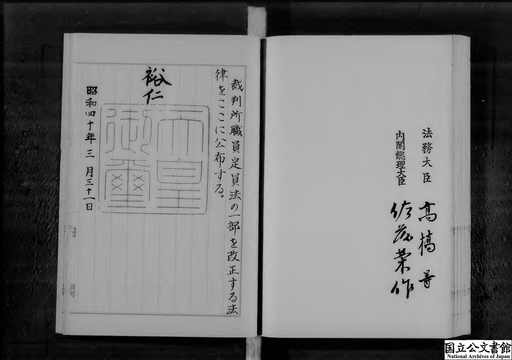 裁判所職員定員法の一部を改正する法
律をここに公布する。
裕仁
天皇
御璽
昭和四十年三月三十一日
法務大臣 高橋等
内閣総理大臣 佐藤榮作
国立公文書館
National Archives of Japan